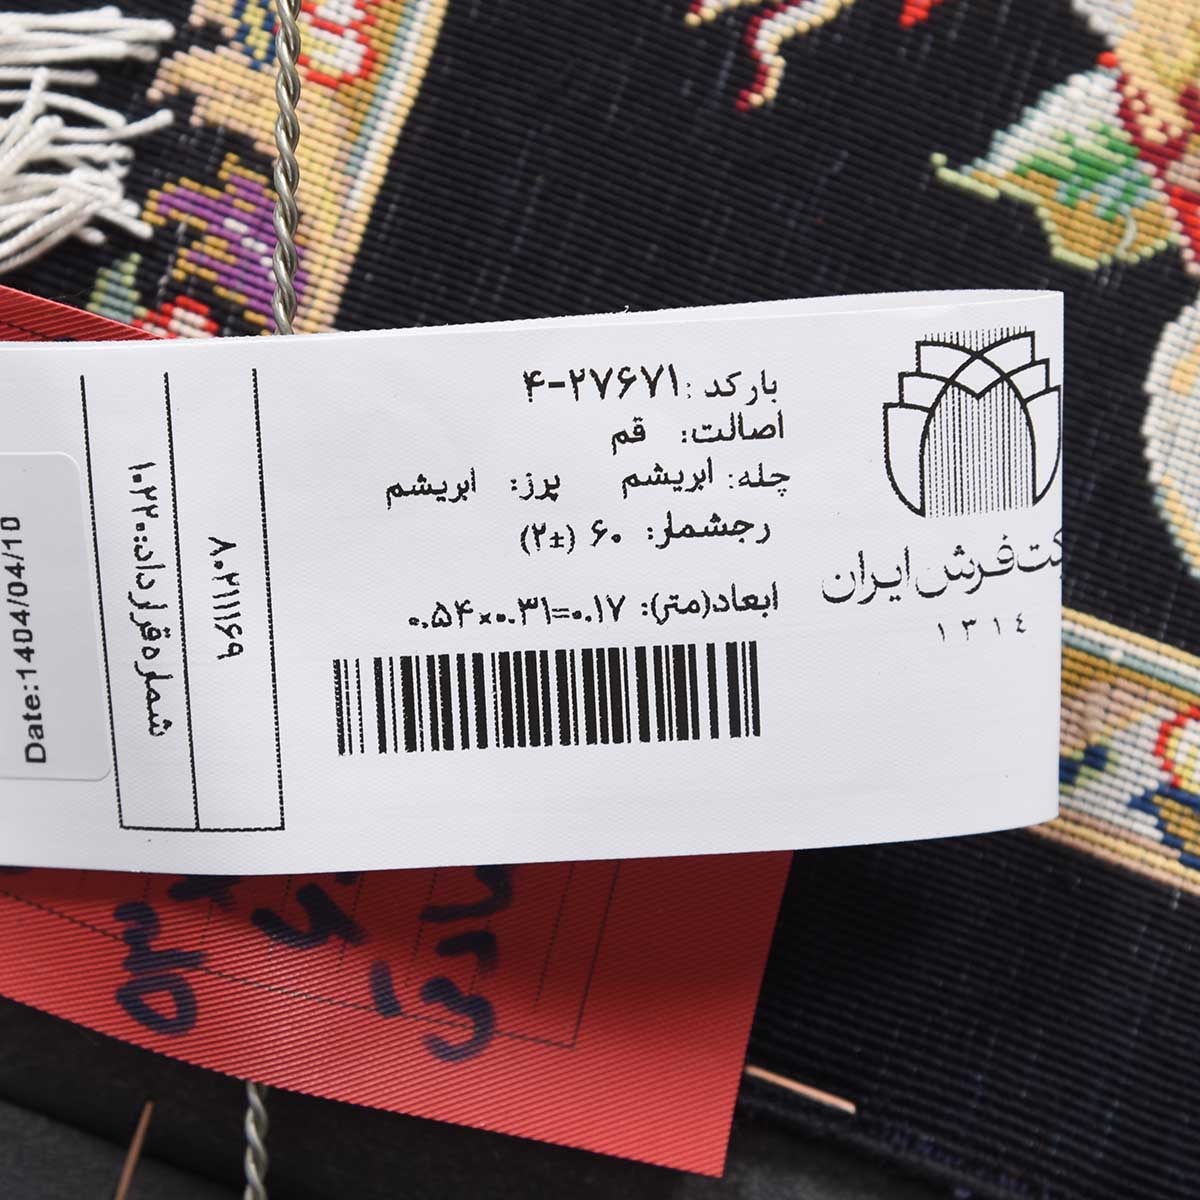 بارکد: ۴-۲۷۶۷۱
اصالت: قم
چله: ابریشم پرز: ابریشم
رجشمار: ۶۰ (±۲)
ابعاد(متر): ۰.۵۴×۰.۳۱=۰.۱۷
فرش ایران
۱۳۱٤
۸۰۲۱۱۱۶۹
شماره قرارداد: ۱۰۲۲۰
Date:1404/04/10